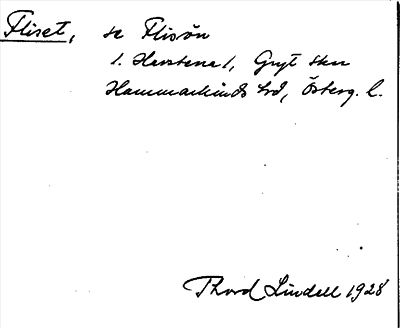 Fliset, se Flisön
1. Harstena 1, Gryt skn
Hammarkinds hd, Österg. l.
Thord Lindell 1928